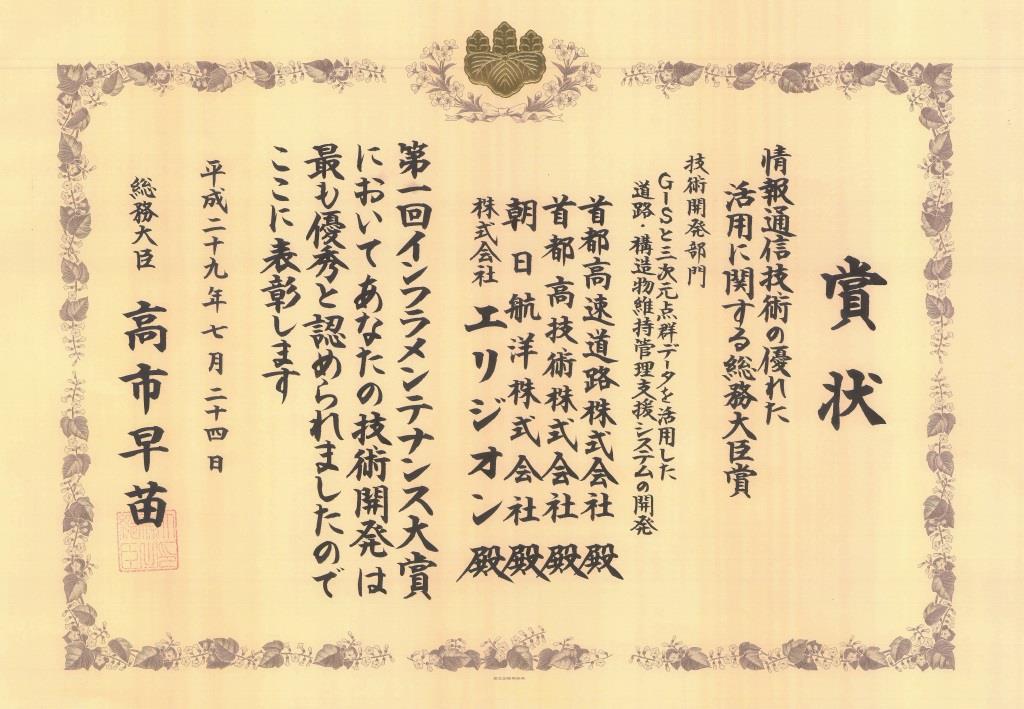 賞状
情報通信技術の優れた
活用に関する総務大臣賞
技術開発部門
GISと三次元点群データを活用した
道路・構造物維持管理支援システムの開発
首都高速道路株式会社 殿
首都高技術株式会社 殿
朝日航洋株式会社 殿
株式会社 エリジオン 殿
第一回インフラメンテナンス大賞
においてあなたの技術開発は
最も優秀と認められましたので
ここに表彰します
平成二十九年七月二十四日
総務大臣 高市早苗